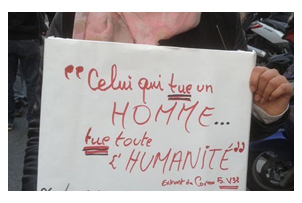 "Celui qui tue un
HOMME...
tue toute
L'HUMANITÉ"
Extrait du Coran 5. V32